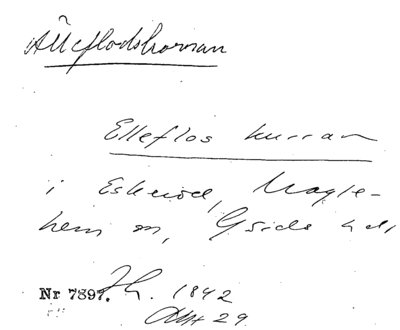 Älleflodskorran
Elleflos kurran
i Eskeröd, Magle-
hem sn, Gärds hd
Nr 7897. 1842
Akt 29